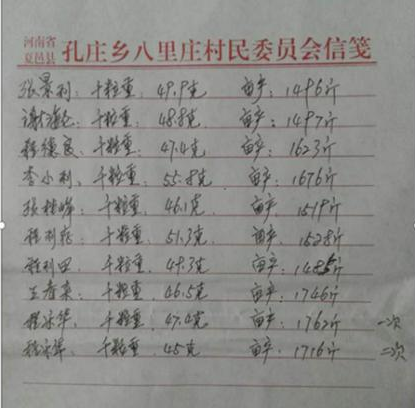 河南省
夏邑县 孔庄乡八里庄村民委员会信笺
张景利：千粒重：49.9克 亩产：1496斤
谢海仓：千粒重：48.8克 亩产：1497斤
程德良：千粒重：47.4克 亩产：1623斤
李小利：千粒重：55.8克 亩产：1676斤
张桂峰：千粒重：46.1克 亩产：1519斤
程利 千粒重：51.3克 亩产：1528斤
程利田：千粒重：49.3克 亩产：1485斤
王 千粒重：46.5克 亩产：1746斤
程宗华：千粒重：47.4克 亩产：1762斤 一次
程宗华：千粒重：45克 亩产：1716斤 二次